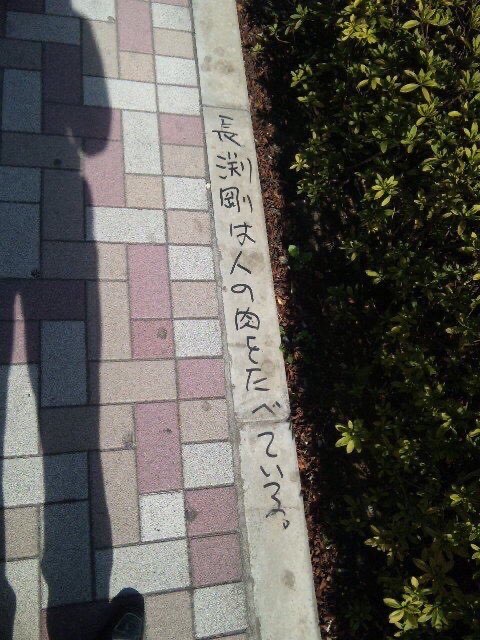 長渕剛は人の肉をたべている。